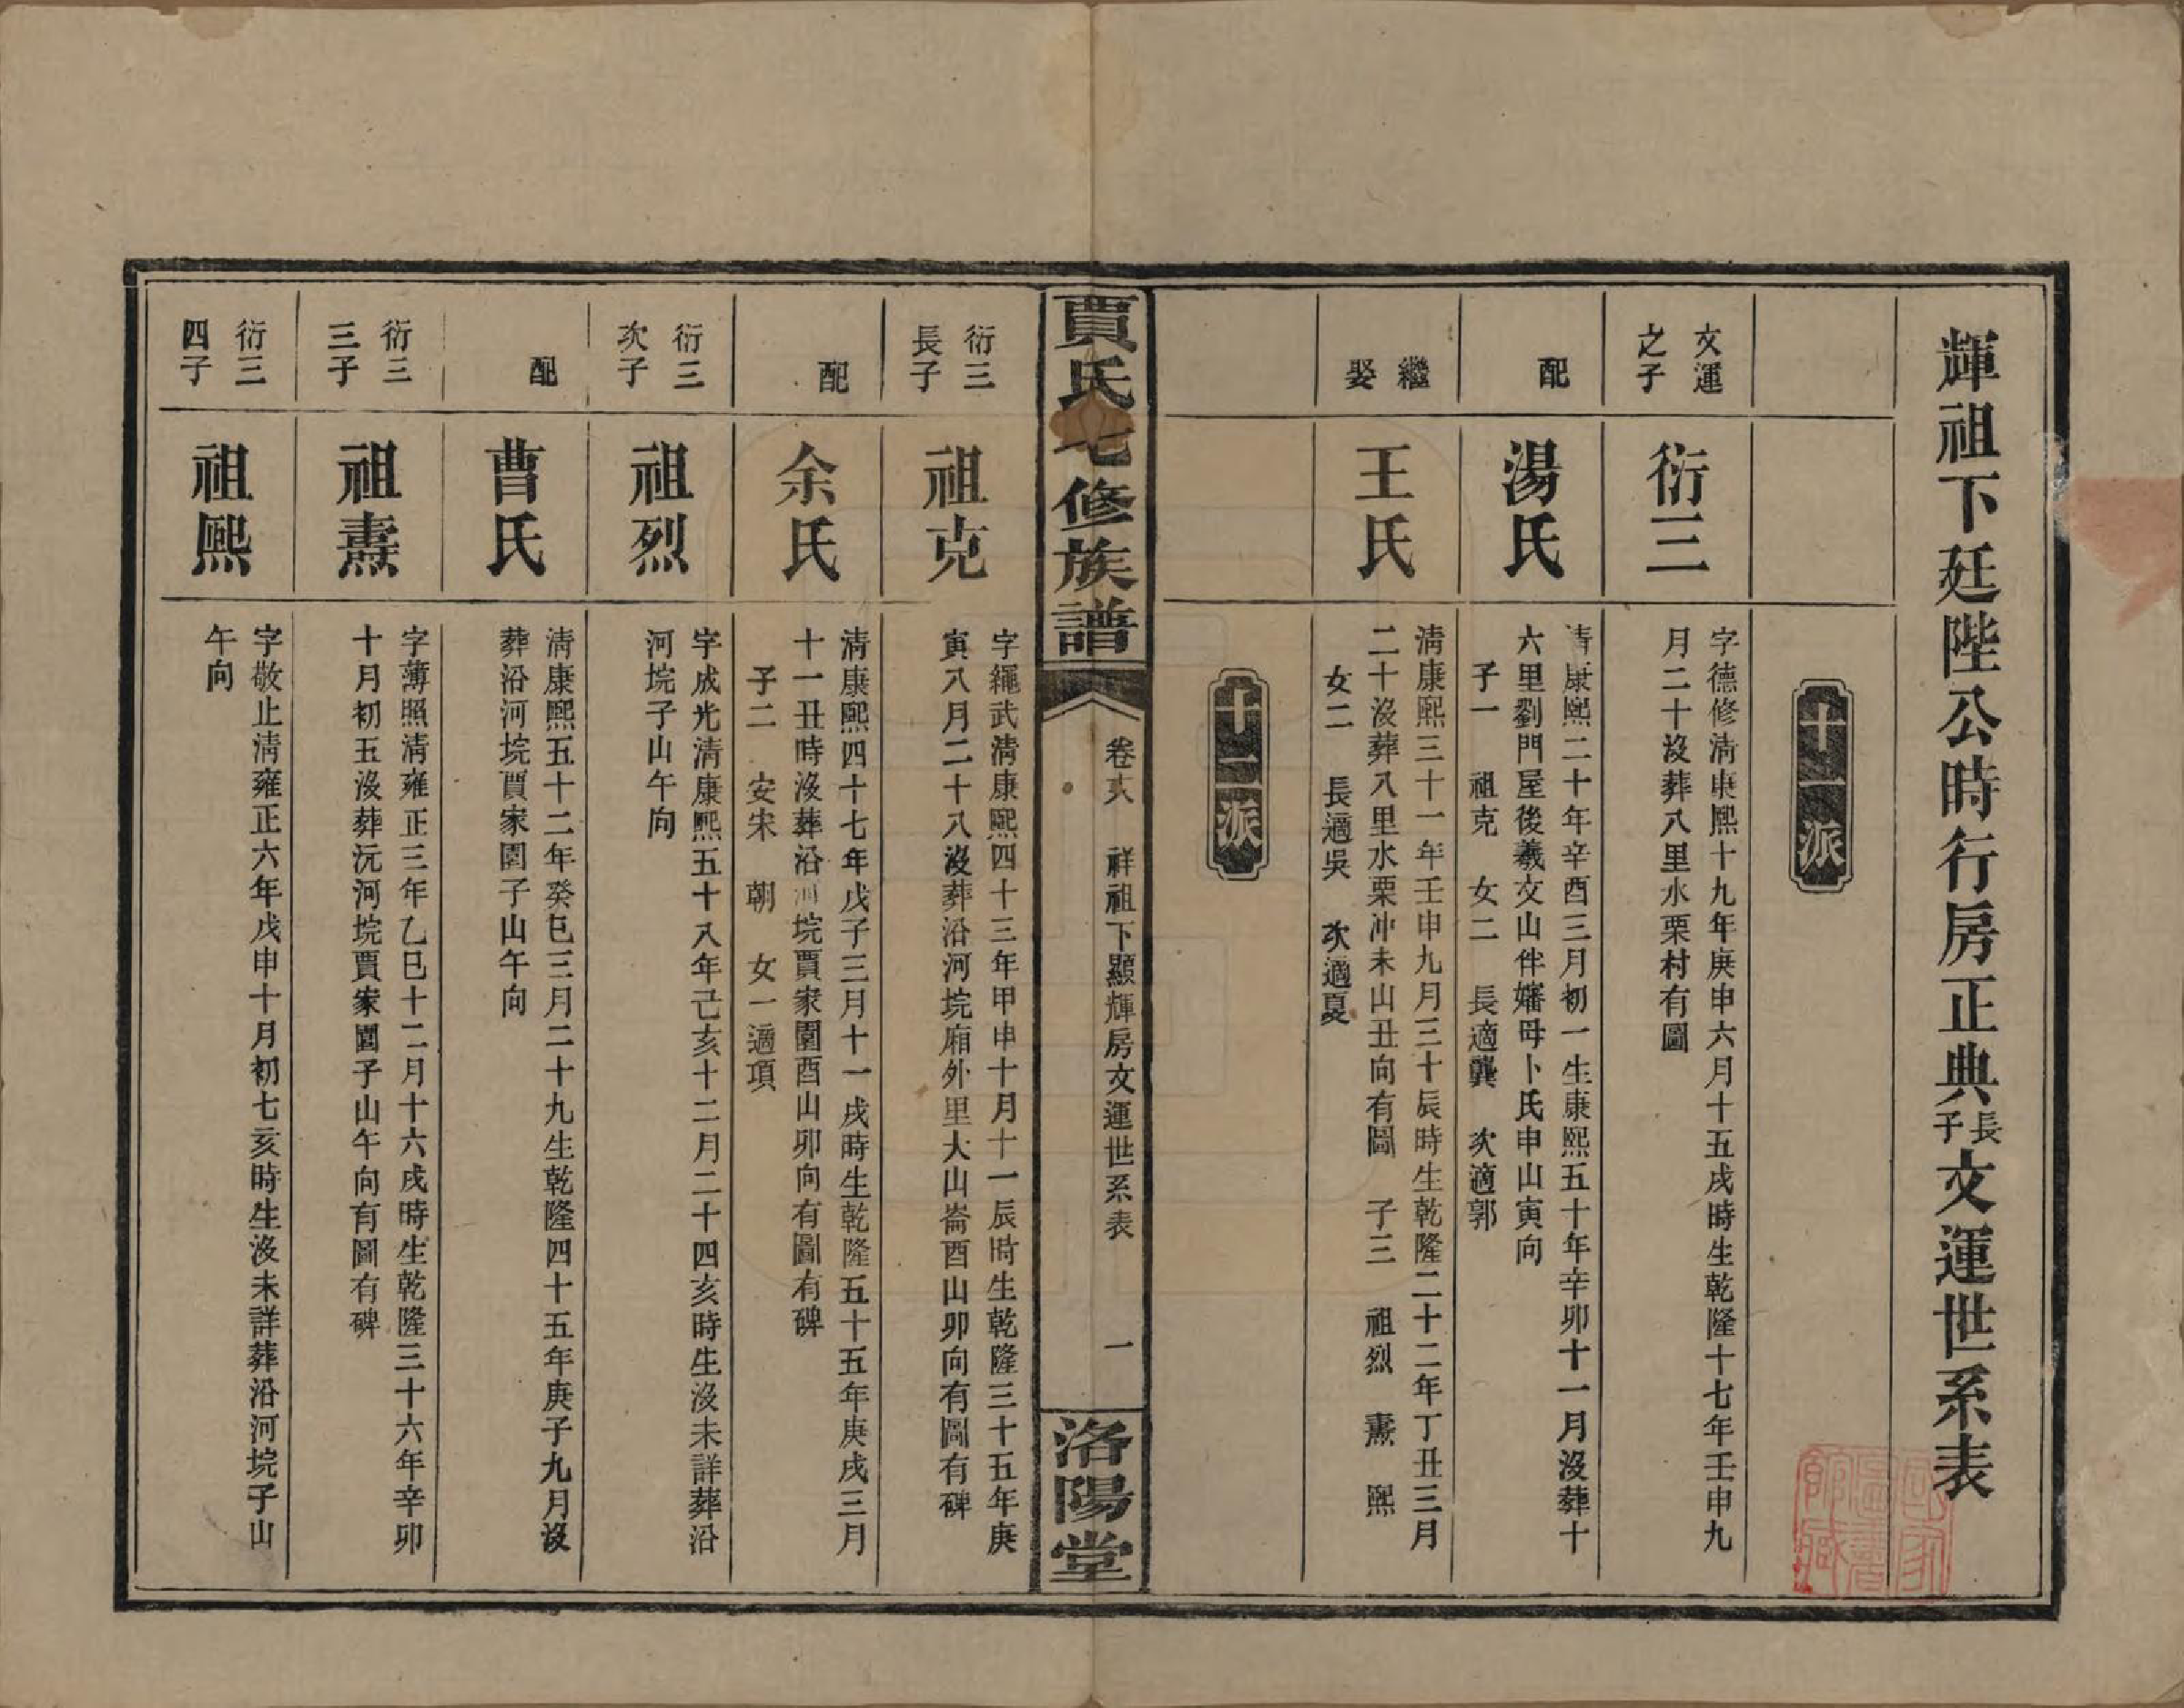 輝祖下廷陛公時行房正典長子文運世系表
十一派
文運之子
衍三
字德修清康熙十九年庚申六月十五戌時生乾隆十七年壬申九
月二十沒葬八里水栗村有圖
配
湯氏
清康熙二十年辛酉三月初一生康熙五十年辛卯十一月沒葬十
六里劉門屋後羲文山伴嬸母卜氏申山寅向
子一 祖克 女二 長適龔 次適郭
繼娶
王氏
清康熙三十一年壬申九月三十辰時生乾隆二十二年丁丑三月
二十沒葬八里水栗冲未山丑向有圖 子三 祖烈 燾 熙
女二 長適吳 次適夏
十二派
賈氏七修族譜
卷 祥祖下顯輝房文運世系表 一
洛陽堂
衍三長子
祖克
字繩武清康熙四十三年甲申十月十一辰時生乾隆三十五年庚
寅八月二十八沒葬沿河垸廂外里大山崙酉山卯向有圖有碑
配
余氏
清康熙四十七年戊子三月十一戌時生乾隆五十五年庚戌三月
十一丑時沒葬沿河垸賈家園酉山卯向有圖有碑
子二 安宋 朝 女一適項
衍三次子
祖烈
字成光清康熙五十八年己亥十二月二十四亥時生沒未詳葬沿
河垸子山午向
配
曹氏
清康熙五十二年癸巳三月二十九生乾隆四十五年庚子九月沒
葬沿河垸賈家園子山午向
衍三三子
祖燾
字薄照清雍正三年乙巳十二月十六戌時生乾隆三十六年辛卯
十月初五沒葬沅河垸賈家園子山午向有圖有碑
衍三四子
祖熙
字敬止清雍正六年戊申十月初七亥時生沒未詳葬沿河垸子山
午向